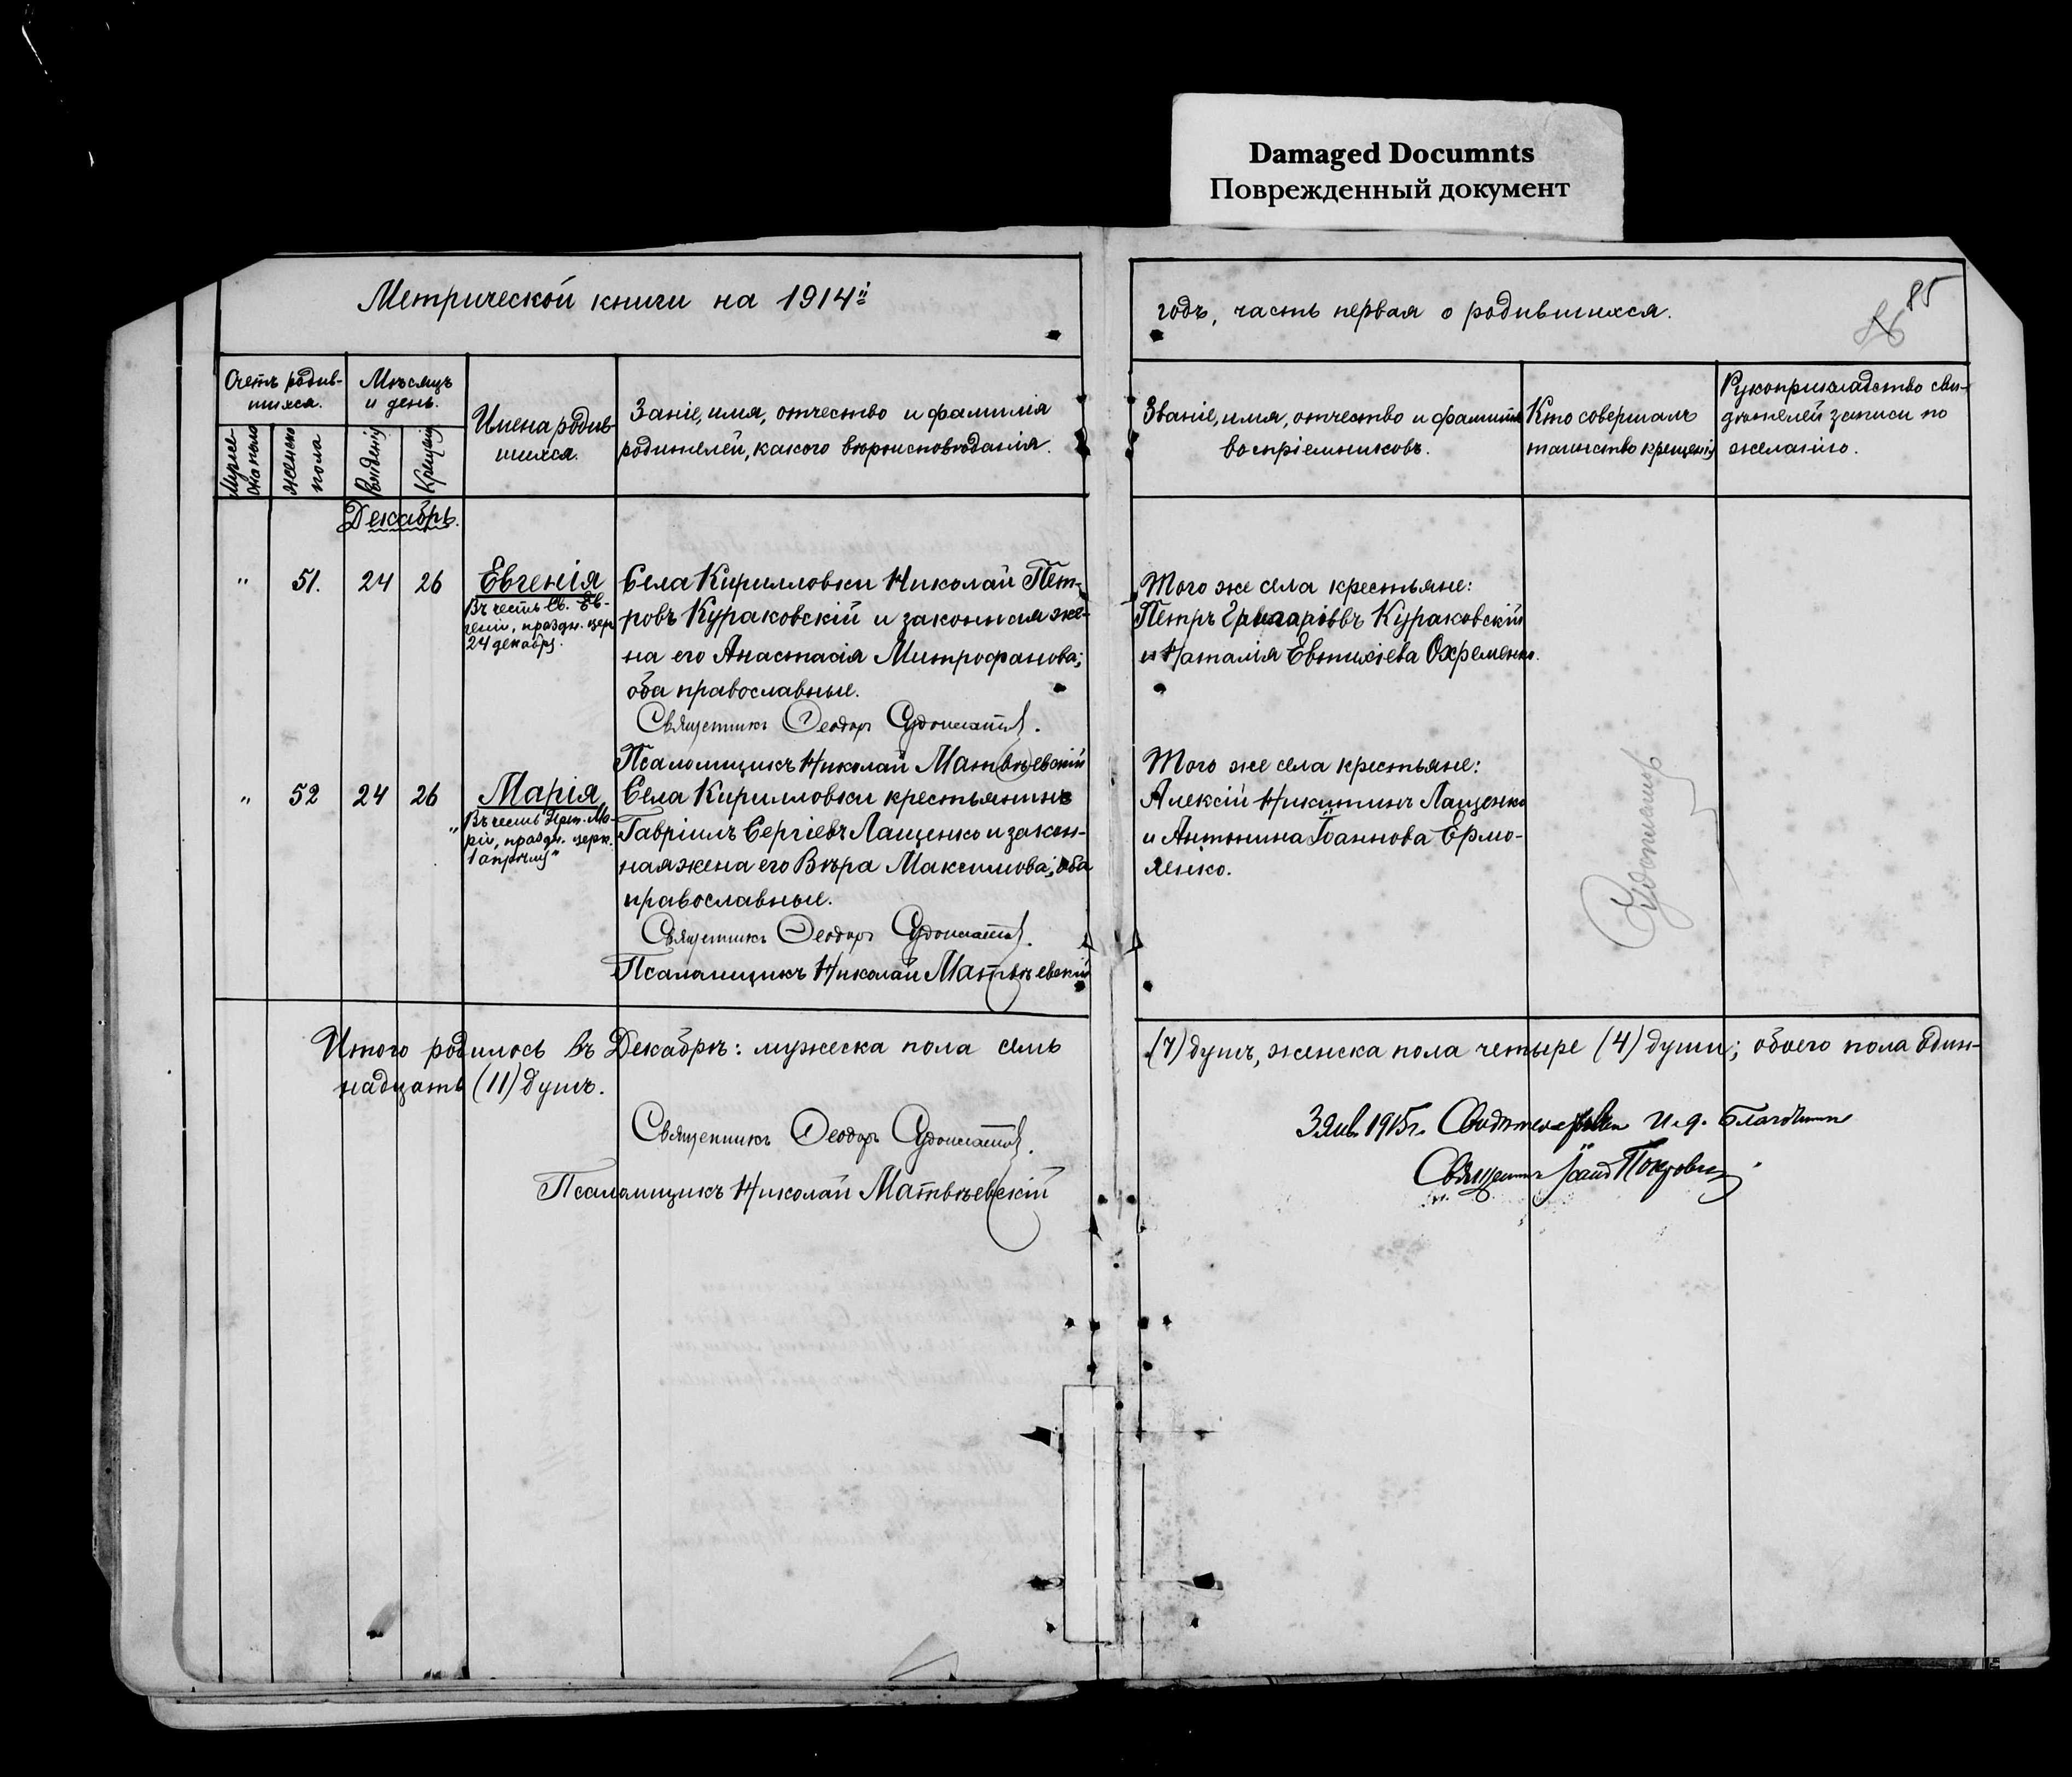 Damaged Documnts
Поврежденный документ
Метрической книги на 1914й
годъ, часть первая о родившихся.
85
86
Счетъ родив-
шихся.
Мѣсяцъ
и день.
Мужес-
ка пола
женска
пола
Рожденія
Крещенія
Имена родив
шихся.
Заніе, имя, отчество и фамилія
родителей, какого вѣроисповѣданія.
Званіе, имя, отчество и фамилія
воспріемниковъ.
Кто совершалъ
таинство крещенія
Рукоприкладство сви-
дѣтелей записи по
желанію.
Декабрь.
" 51. 24 26 Евгенія
Въ честь Св. Ев-
геніи, праздн. цер
24 декабря.
Села Кирилловки Николай Пет-
ровъ Кураковскій и законная же-
на его Анастасія Митрофанова;
оба православные.
Священникъ Ѳеодоръ
Псаломщикъ Николай Матвѣевскій
Того же села крестьяне:
Петръ Григоріевъ Кураковскій
и Наталія Евтихіева Охременко.
" 52 24 26 Марія
"Въ честь Прп. Ма-
ріи, праздн. церк.
1 апрѣля"
Села Кирилловки крестьянинъ
Гавріилъ Сергіевъ Лащенко и закон-
ная жена его Вѣра Максимова; оба
православные.
Священникъ Ѳеодоръ
Псаломщикъ Николай Матвѣевскій
Того же села крестьяне:
Алексій Никитинъ Лащенко
и Антонина Іоаннова Ермо-
ленко.
Итого родилось въ Декабрѣ: мужеска пола семь
(7) душъ, женска пола четыре (4) души; обоего пола один-
надцать (11) душъ.
Священникъ Ѳеодоръ
Псаломщикъ Николай Матвѣевскій
3 Янв. 1915 г. И. д.
Священникъ